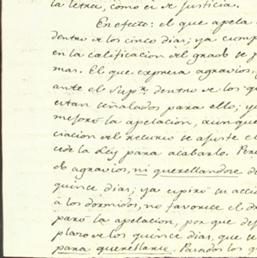 la letra, como es de Justicia.
En efecto: el que apela
dentro de los cinco dias; ya cump
en la calificacion del grado se
mas. El que expresa agravios,
ante el Sup.r dentro de los q
estan señalados para ello; ya
mejoró la apelacion, aunque
ciacion del recurso se ajuste el
cede la Ley para acabarlo. Pero
do agravios, ni querellandose de
quince dias; ya espiró su acció
á los dormidos, no favorece el d
paró la apelacion, por que de
plazo de los quince dias, que se
para querellarse. Pasados los q